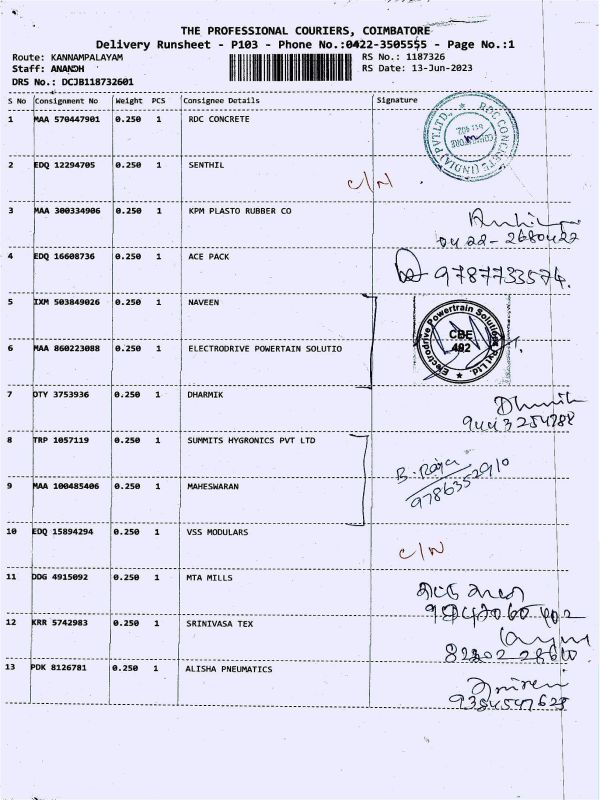 THE PROFESSIONAL COURIERS, COIMBATORE
Delivery Runsheet - P103 - Phone No.:0422-3505555 - Page No.:1
Route: KANNAMPALAYAM RS No.: 1187326
Staff: ANANDH RS Date: 13-Jun-2023
DRS No.: DCJB118732601
S No Consignment No Weight PCS Consignee Details Signature
1 MAA 570447901 0.250 1 RDC CONCRETE
RDC CONCRETE (INDIA) PVT.LTD.,
2 EDQ 12294705 0.250 1 SENTHIL
C/N
3 MAA 300334906 0.250 1 KPM PLASTO RUBBER CO
0422-2680422
4 EDQ 16608736 0.250 1 ACE PACK 9787733574.
5 IXM 503849026 0.250 1 NAVEEN
Electrodrive Powertrain Solutions Pvt Ltd.
CBE
402
6 MAA 860223088 0.250 1 ELECTRODRIVE POWERTAIN SOLUTIO
7 DTY 3753936 0.250 1 DHARMIK
8 TRP 1057119 0.250 1 SUMMITS HYGRONICS PVT LTD
B. Raja
9786352910
9 MAA 100485406 0.250 1 MAHESWARAN
10 EDQ 15894294 0.250 1 VSS MODULARS
C/N
11 DDG 4915092 0.250 1 MTA MILLS
12 KRR 5742983 0.250 1 SRINIVASA TEX
13 PDK 8126781 0.250 1 ALISHA PNEUMATICS
9384547628